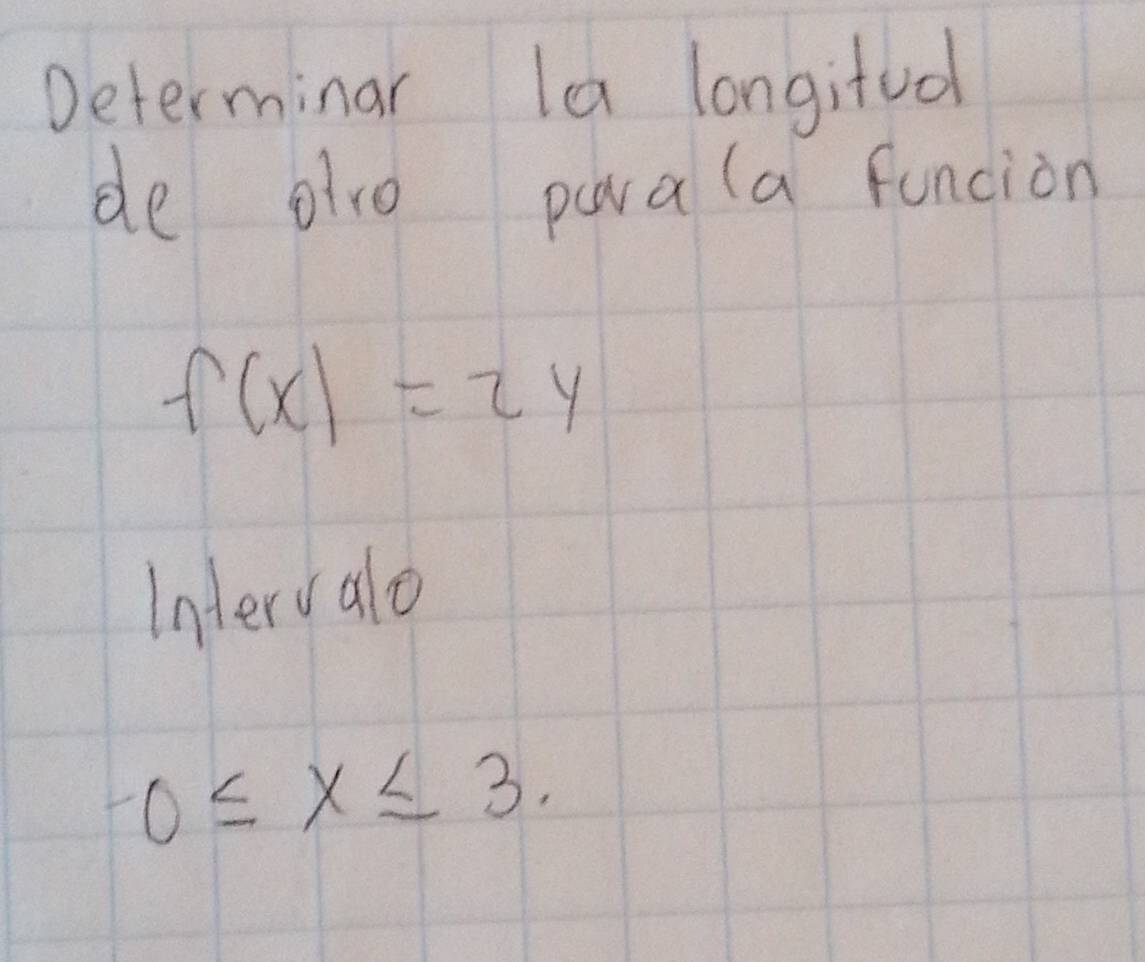 Determinar la longitud
de otro para la función
f(x) = 2y
Intervalo
-0 ≤ x ≤ 3.